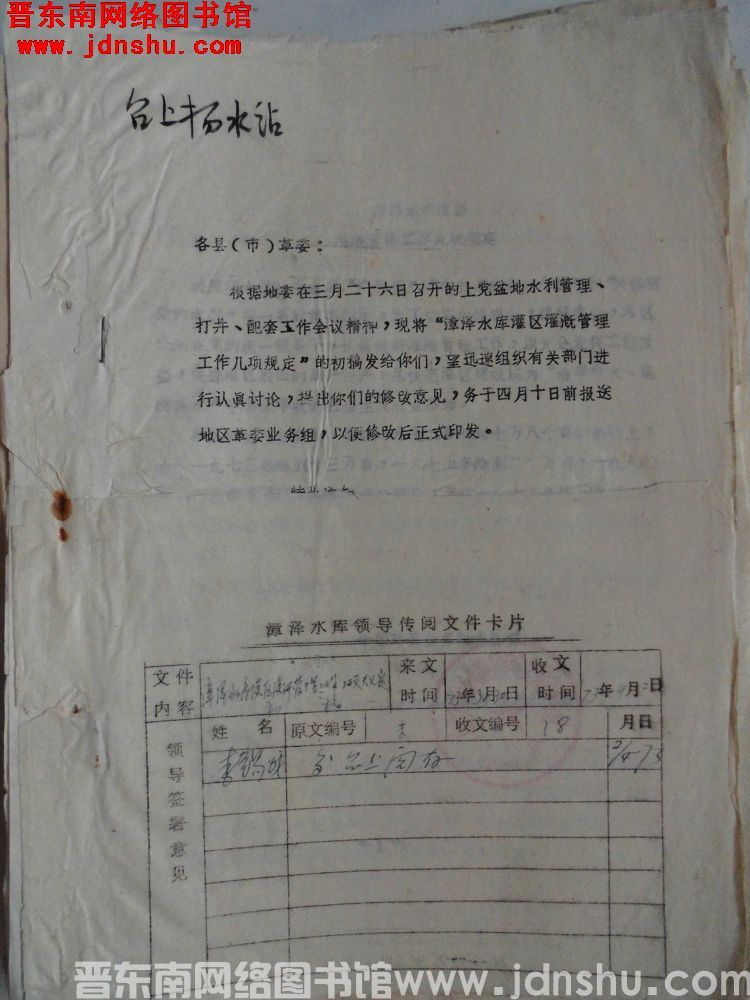 晋东南网络图书馆
www.jdnshu.com
台上扬水站
各县(市)革委:
根据地委在三月二十六日召开的上党盆地水利管理、
打井、配套工作会议精神,现将“漳泽水库灌区灌溉管理
工作几项规定”的初稿发给你们,望迅速组织有关部门进
行认真讨论,提出你们的修改意见,务于四月十日前报送
地区革委业务组,以便修改后正式印发。
漳泽水库领导传阅文件卡片
文件内容
来文时间 73年3月30日
收文时间 73年4月2日
姓名 原文编号 收文编号 18 月日
领导签署意见
晋东南网络图书馆www.jdnshu.com